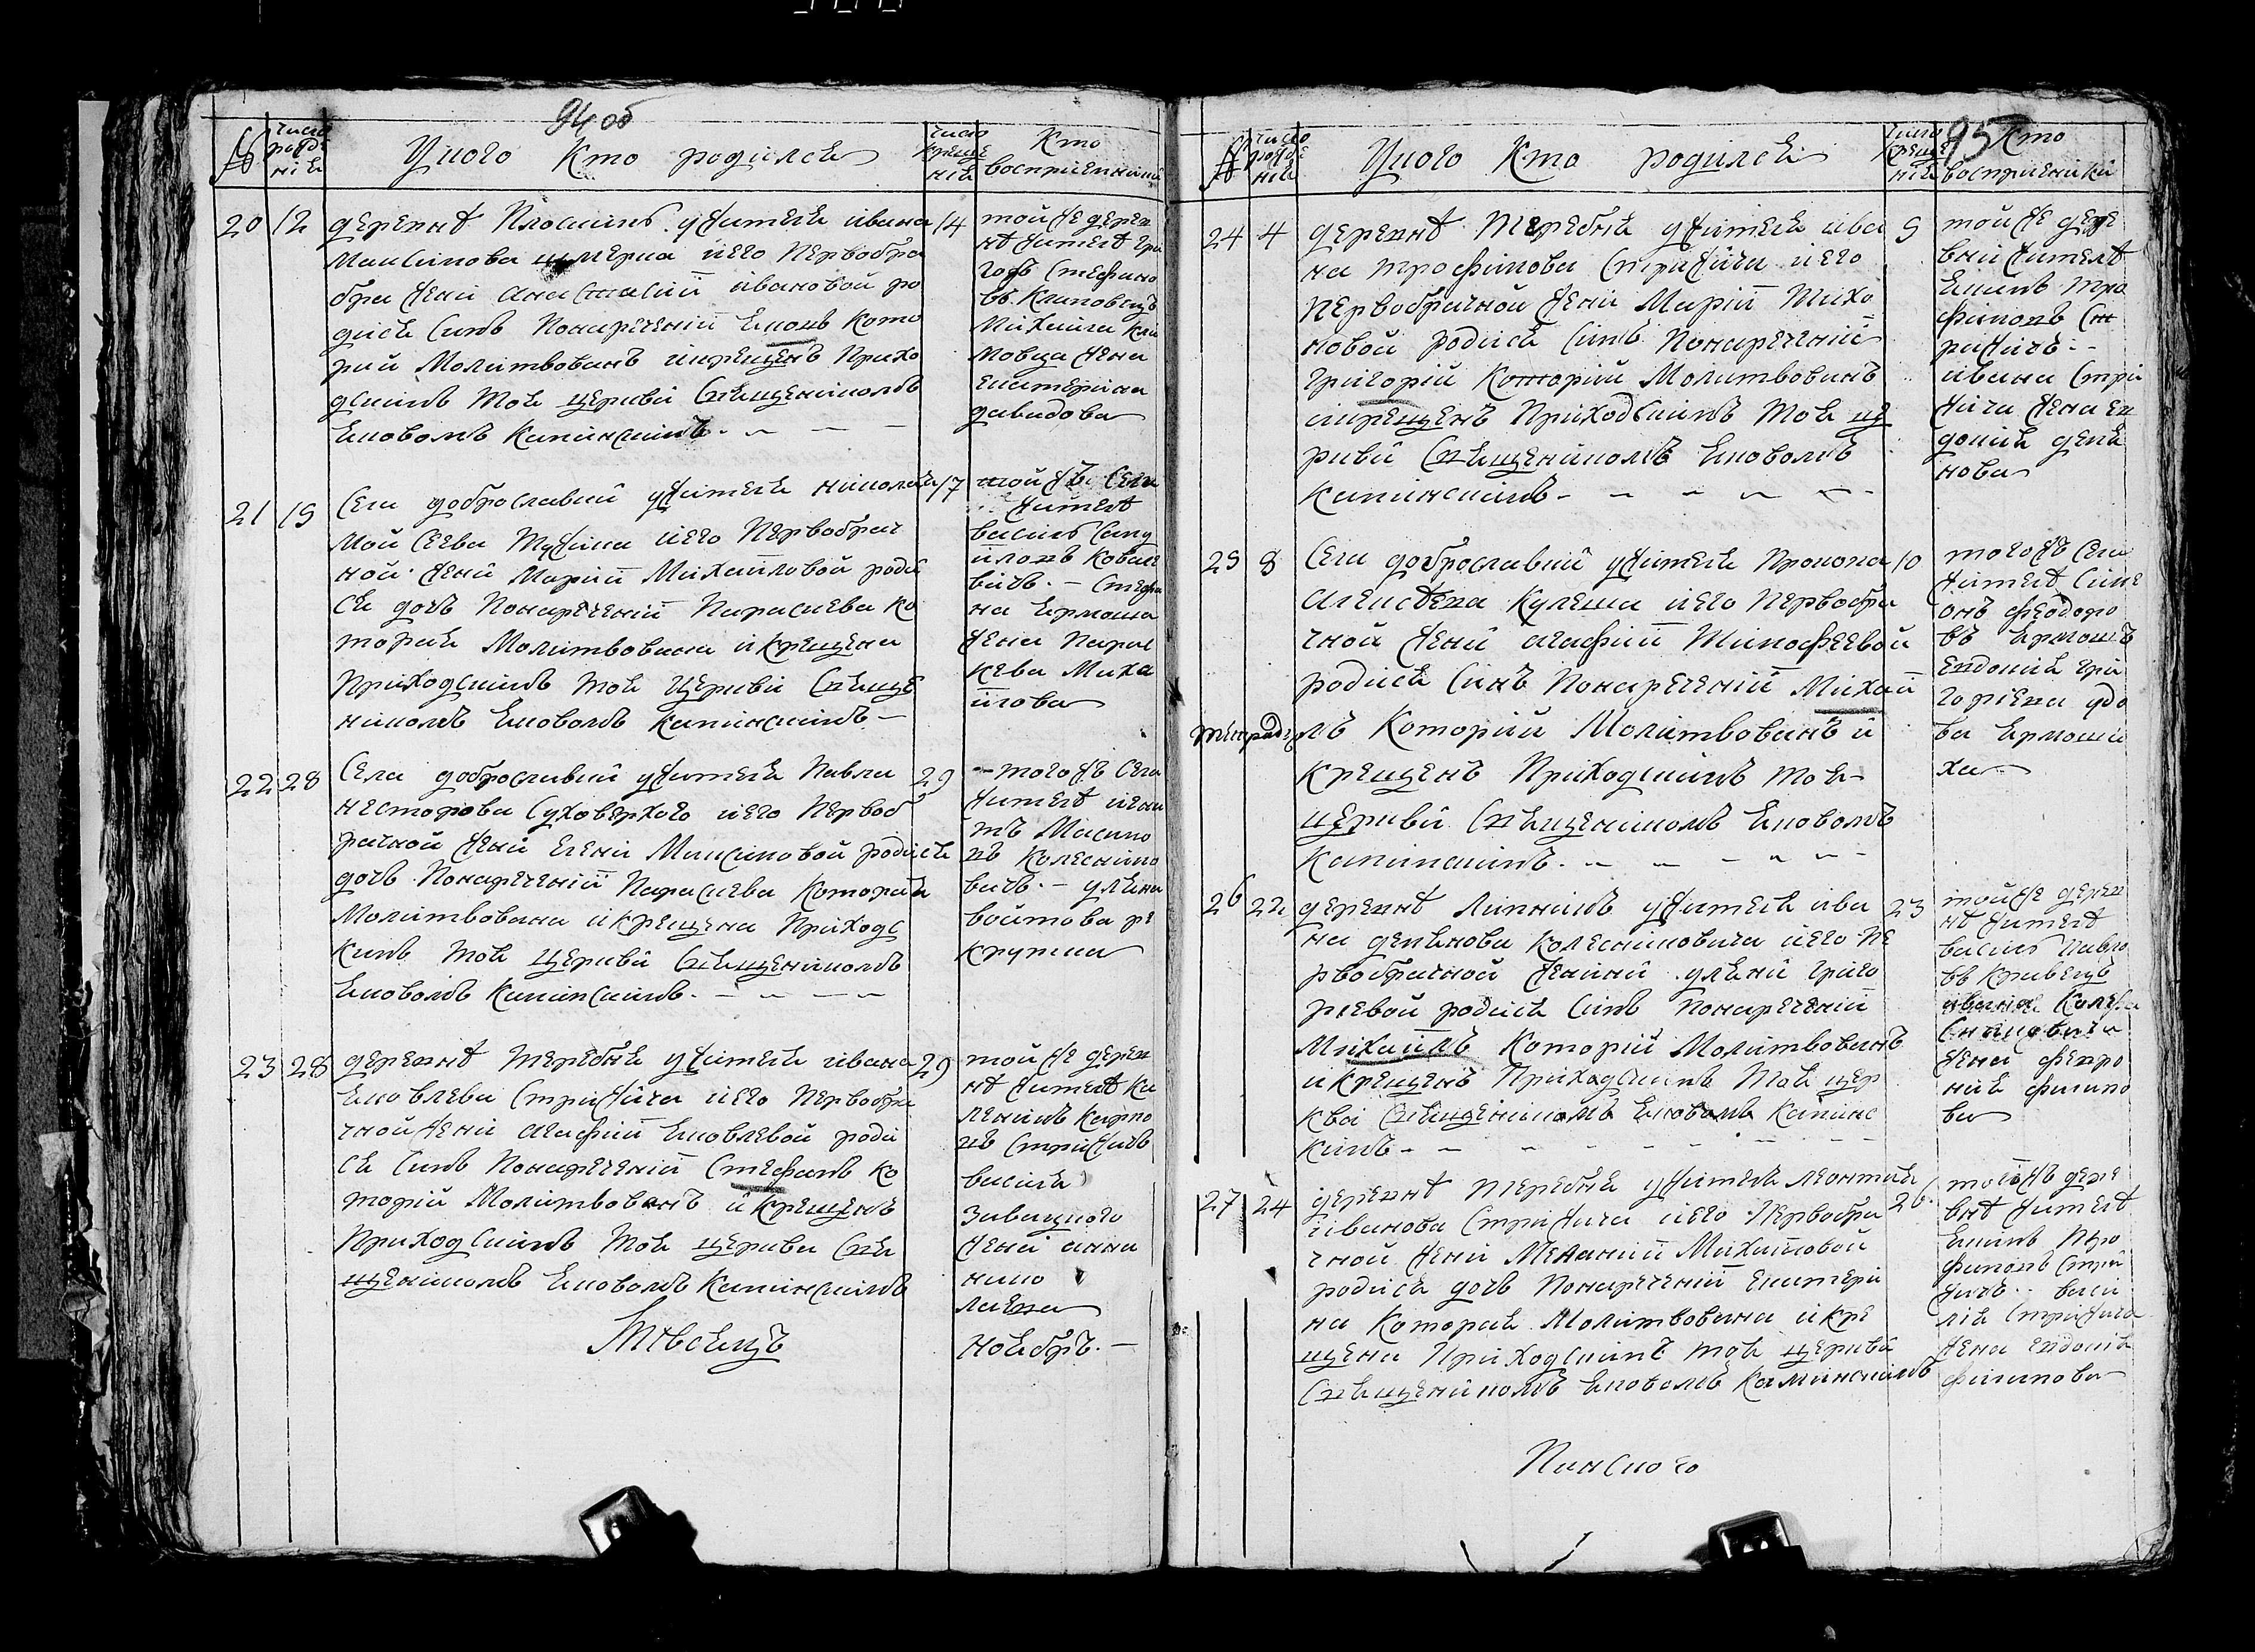 94 об
№
число рожде нія
У кого кто родился
число креще нія
Кто восприемники
20
12
деревнѣ Плоскинь у жителя ивана
14
Максимова его первобра
бра жени анастасіи ивановой ро
дися синъ понареченій кото
рий молитвованъ икрещенъ прихо
дскимъ тоя церкви священікомъ
Еяковомъ Капинскимъ
той же дерев
нѣ жителѣ гри
горъ Стефано
въ Климовецъ
Михаила Кли
мовца жена
екатерина
давидова
21
15
Села доброславки у жителя николая
17
Мой сеева его первобрач
ной жени Маріи Михайловой роди
ся дочь понареченій Параскева ко
торая молитвована икрещена
приходскимъ тоя церкви свяще
никомъ Еяковомъ Капинскимъ
жителѣ
василь
Ковале
вичь стефа
на Ермоша
жена Парас
кева Миха
йлова
22
28
Села доброславки у жителя Павла
29
несторова Суховерхого иего первоб
рачной жени елени Максимовой родися
дочь понареченій Параскева которая
Молитвована икрещена приходс
кимъ тоя церкви священікомъ
Еяковомъ Капинскимъ
того жъ села
жителѣ
тъ Максимо
въ Колеснико
вичь уляна
войтова ре
крутка
23
28
деревнѣ теребня у жителя ивана
29
Еяковлева Стрижича иего первобра
чной жени агафіи Еяковлевой роди
ся синъ понареченій Стефанъ ко
торій молитвованъ икрещенъ
приходскимъ тоя церкви свя
щенікомъ Еяковомъ Капинскимъ
той же дерев
нѣ жителѣ Ка
леникъ Карпо
въ Стрижичь
василя
Завацкого
жена анна
нико
лаева
Мѣсецъ
Ноябръ
95
№
число рожде нія
У кого кто родился
число креще нія
Кто восприемники
24
4
деревнѣ теребня у жителя ива
5
на трофимова Стрижича иего
первобрачной жени Маріи Тихо
новой родися синъ понареченій
григорій которий Молитвованъ
икрещенъ приходскимъ тоя це
ркви священікомъ Еяковомъ
Капинскимъ
той же дере
вни жителѣ
Екимъ тро
фимовъ Ст
рижичь
ивана Стри
жича жена ев
докия демя
нова
25
8
Села доброславки у жителя Прокопа
10
алексѣева Кулеша иего первобра
чной жени агафіи тимофеевой
родися синъ понареченій Михай
лъ которий Молитвованъ и
крещенъ приходскимъ тоя
церкви священікомъ Еяковомъ
Капинскимъ
того жъ села
жителѣ Симе
онъ феодоро
въ Ермошъ
Евдокия гри
горіева удо
ва Ермоши
ха
26
22
деревнѣ Липникъ у жителя ива
23
на демянова Колесниковича иего пе
рвобрачной женини уляни григо
риевой родися синъ понареченій
Михаилъ которій Молитвованъ
икрещенъ приходскимъ тоя цер
кви священікомъ Еяковомъ Капинс
кимъ
той же дерев
нѣ жителѣ
василь Павло
въ Кривецъ
ивана Колеса
сниковича
жена февро
ния филипо
ва
27
24
деревнѣ теребня у жителя леонтия
26
иванова Стрижича иего первобра
чной жени Меланіи Михайловой
родися дочь понареченій Екатери
на которая Молитвована икре
щена приходскимъ тоя церкви
священікомъ Еяковомъ Капинскимъ
той жъ дере
внѣ жителѣ
Екимъ тро
фимовъ Стри
жичь васи
лія Стрижича
жена евдокия
филипова
Пинского